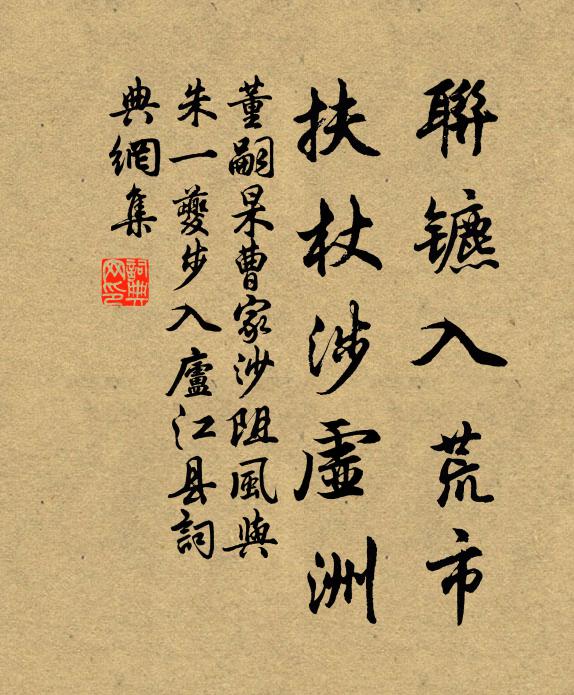 聯镳入荒市
扶杖涉虛洲
董嗣杲曹家沙阻風與
朱一夔步入廬江县詞
典網集
詞典
网印